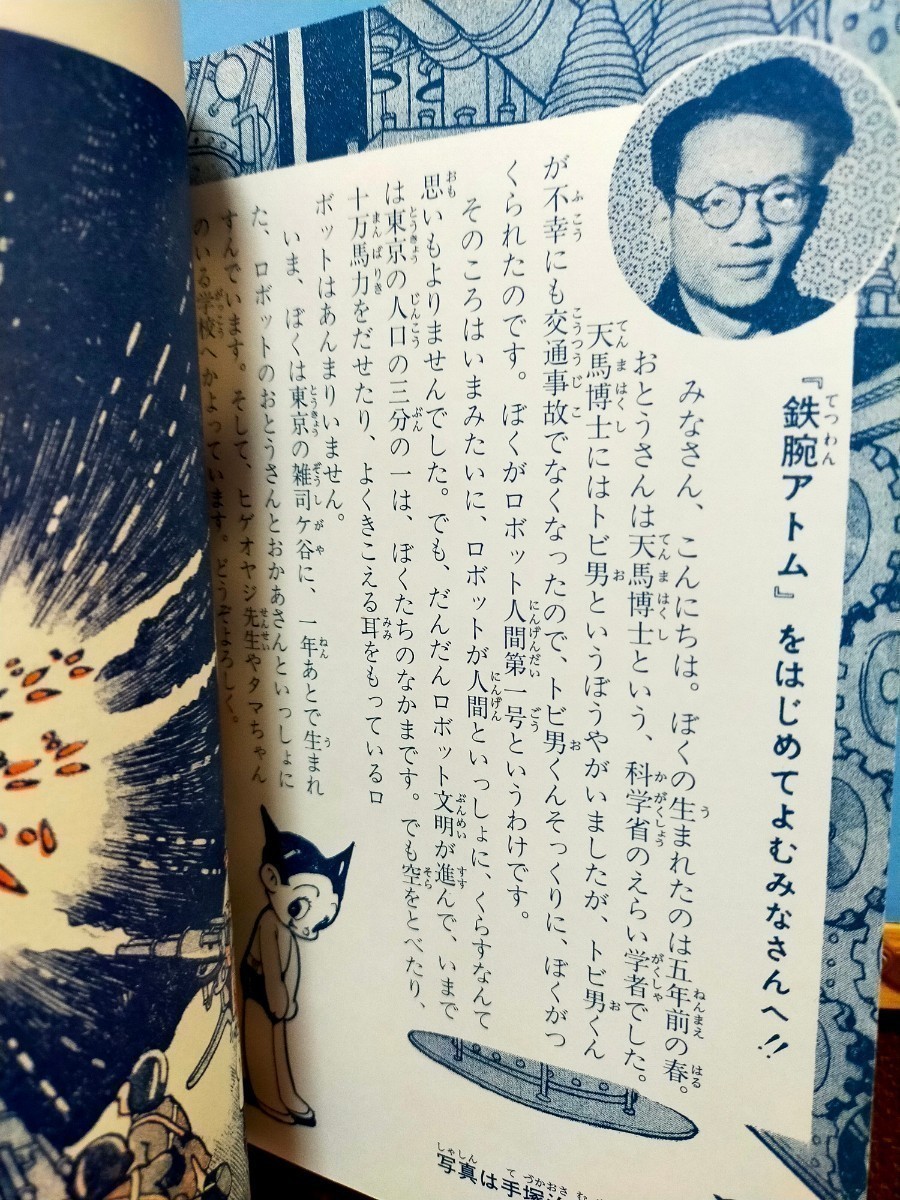 『鉄腕アトム』をはじめてよむみなさんへ!!
みなさん、こんにちは。ぼくの生まれたのは五年前の春。
おとうさんは天馬博士という、科学省のえらい学者でした。
天馬博士にはトビ男というぼうやがいましたが、トビ男くん
が不幸にも交通事故でなくなったので、トビ男くんそっくりに、ぼくがつ
くられたのです。ぼくがロボット人間第一号というわけです。
そのころはいまみたいに、ロボットが人間といっしょに、くらすなんて
思いもよりませんでした。でも、だんだんロボット文明が進んで、いまで
は東京の人口の三分の一は、ぼくたちのなかまです。でも空をとべたり、
十万馬力をだせたり、よくきこえる耳をもっているロ
ボットはあんまりいません。
いま、ぼくは東京の雑司ケ谷に、一年あとで生まれ
た、ロボットのおとうさんとおかあさんといっしょに
すんでいます。そして、ヒゲオヤジ先生やタマちゃん
のいる学校へかよっています。どうぞよろしく。
写真は手塚治